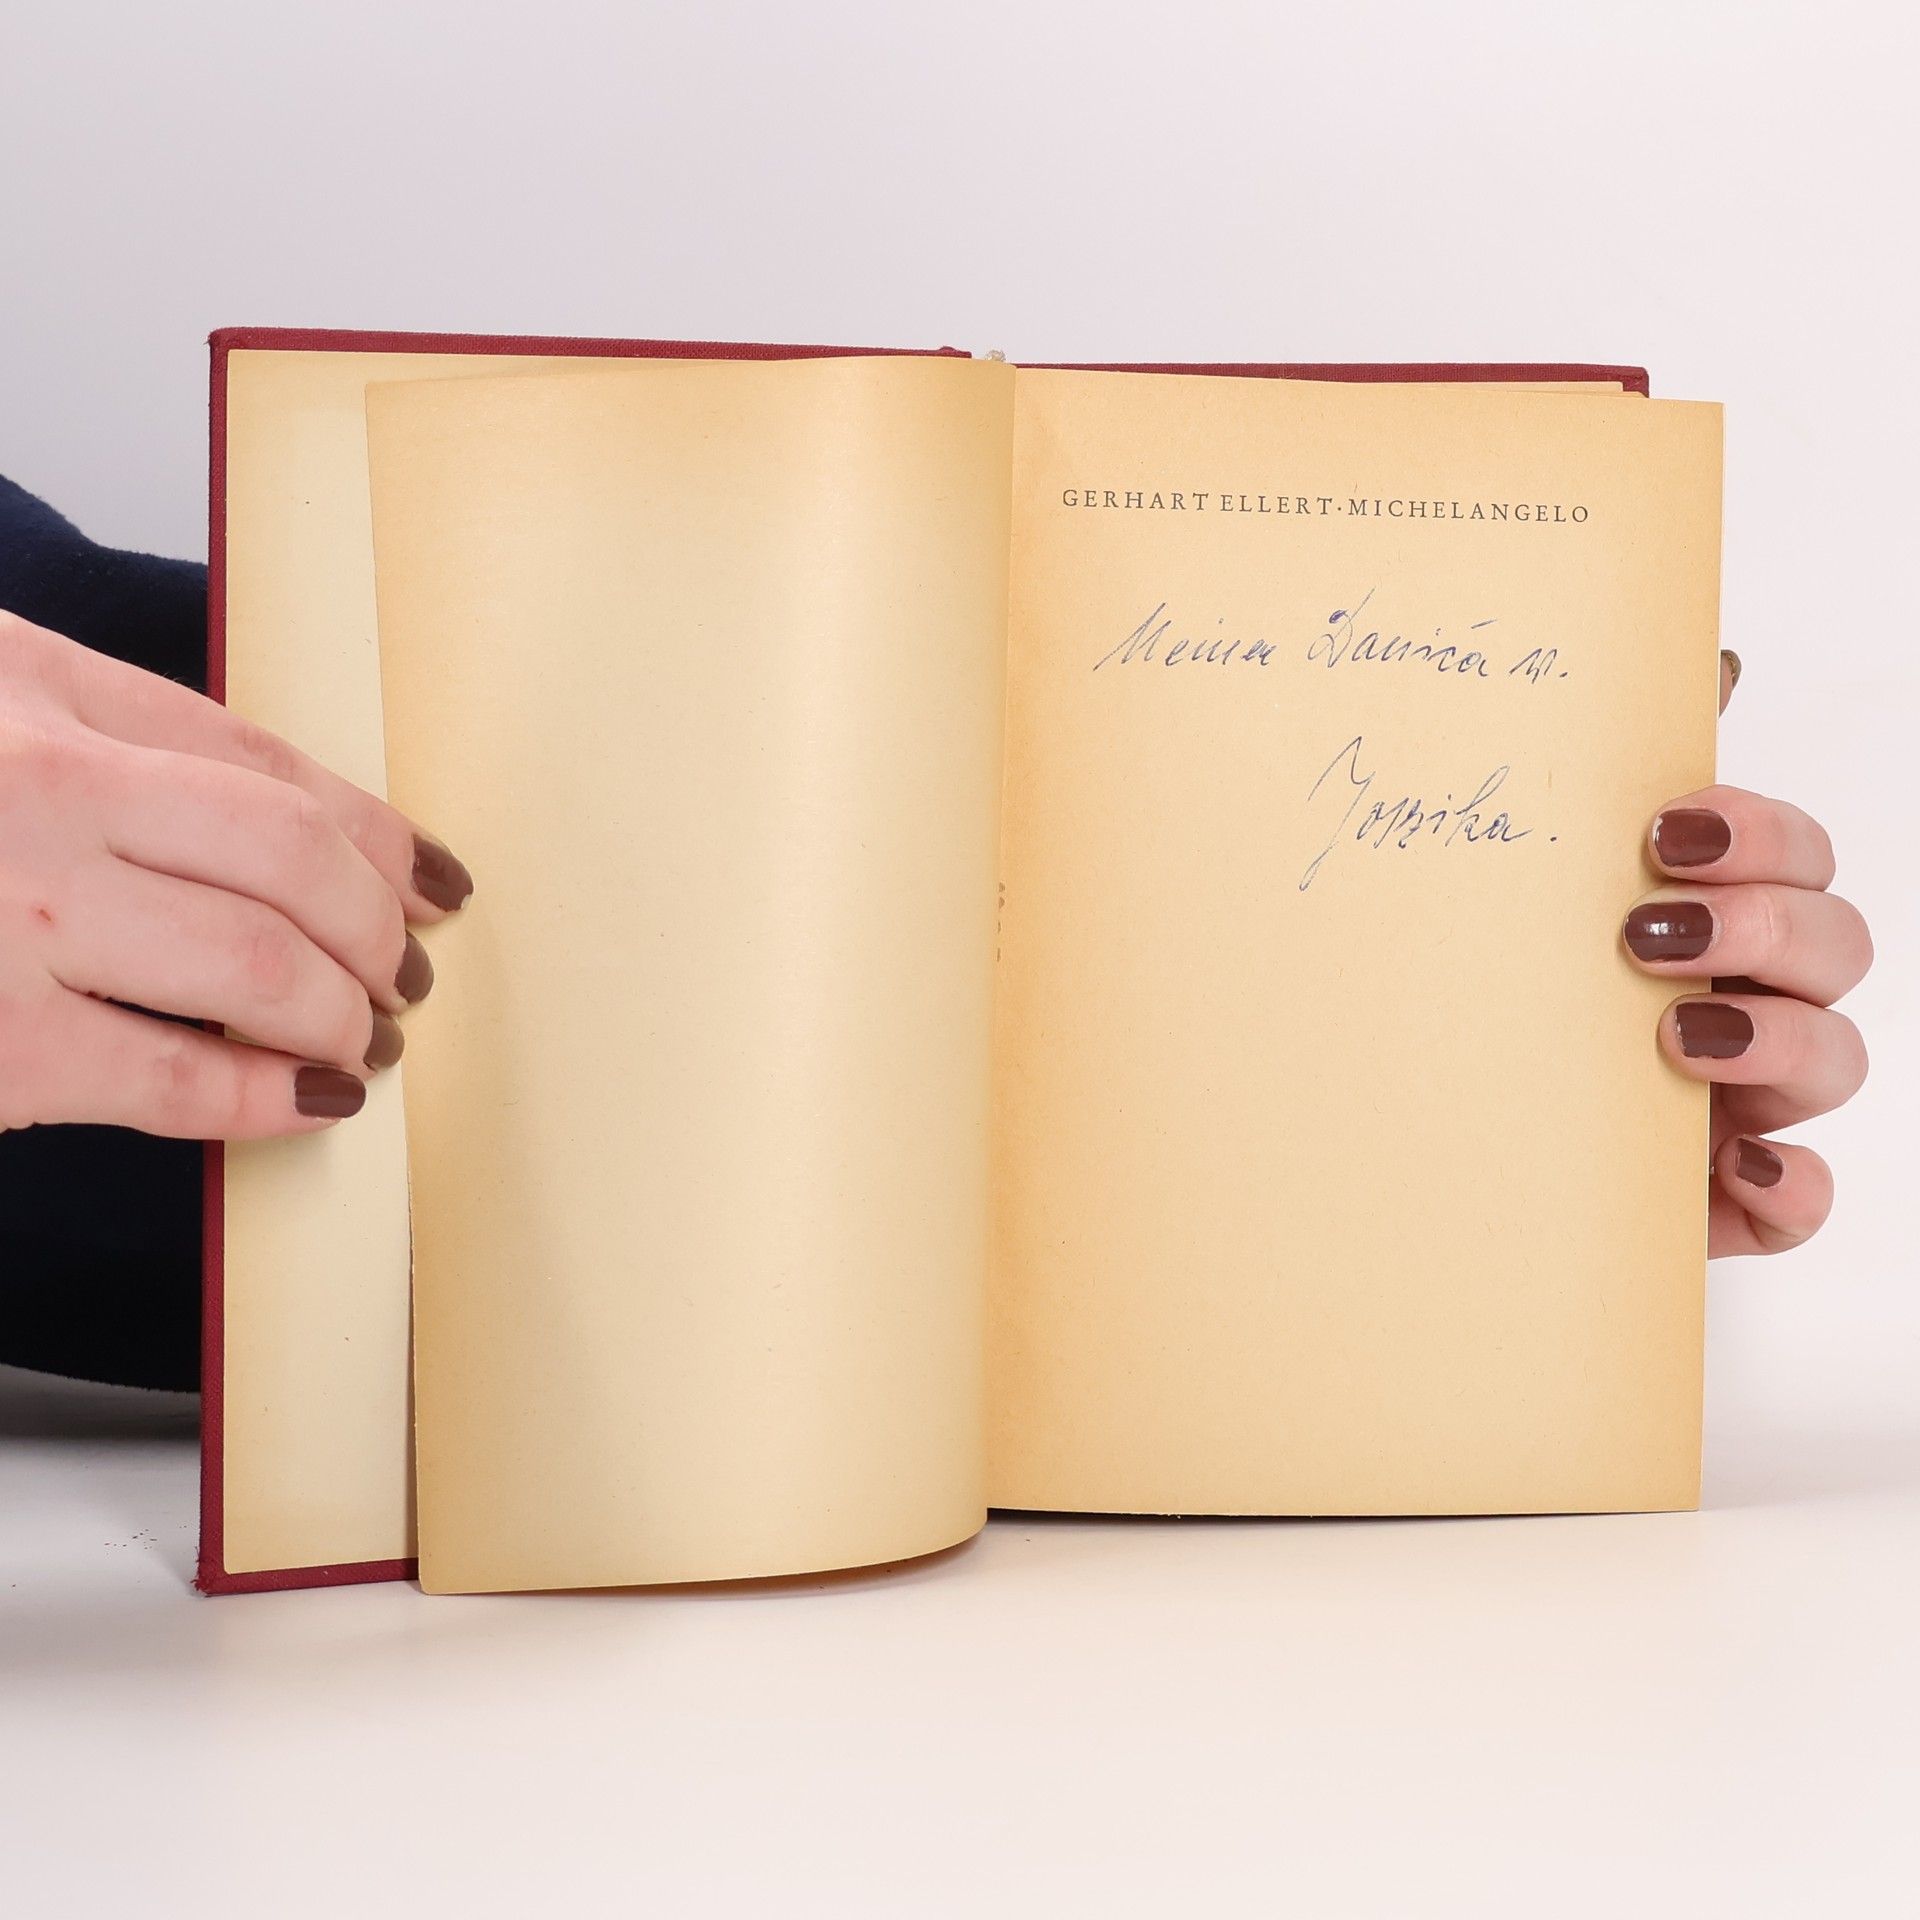 GERHART ELLERT·MICHELANGELO
Meiner Danića v.
Joszika.